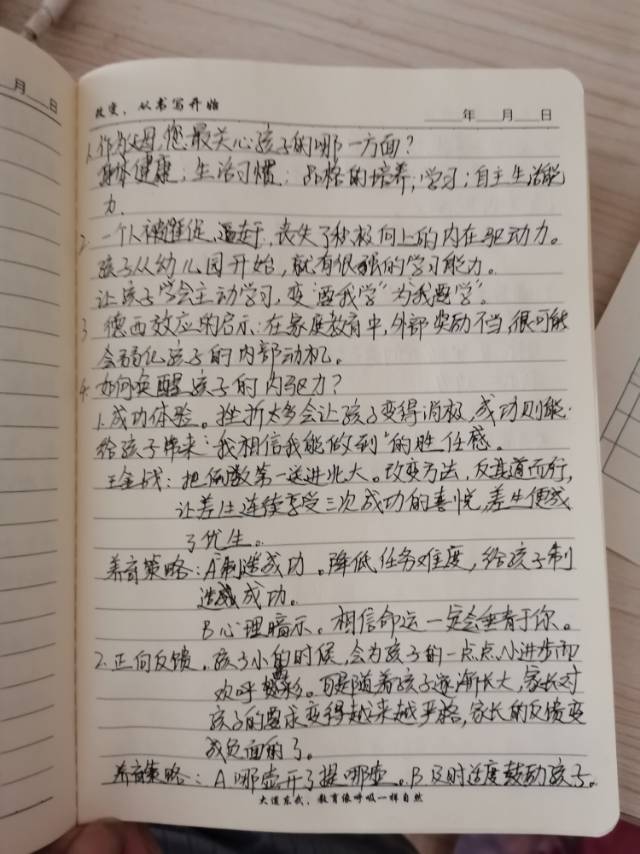 月 日
改变，从书写开始
年 月 日
1.作为父母，您最关心孩子的哪一方面？
身体健康；生活习惯；品格的培养；学习；自主生活能
力.
2. 一个人被催促、逼迫于，丧失了积极向上的内在驱动力。
孩子从幼儿园开始，就有很强的学习能力。
让孩子学会主动学习，变“要我学”为“我要学”。
3. 德西效应的启示：在家庭教育中，外部奖励不当，很可能
会弱化孩子的内部动机。
4. 如何唤醒孩子的内驱力？
1.成功体验。挫折太多会让孩子变得消极，成功则能
给孩子带来“我相信我能做到”的胜任感。
王金战：把倒数第一送进北大。改变方法，反其道而行，
让差生连续享受三次成功的喜悦，差生便成
了优生。
养育策略：A 制造成功。降低任务难度，给孩子制
造成功。
B 心理暗示。相信命运一定会垂青于你。
2.正向反馈。孩子小的时候，会为孩子的一点点小进步而
欢呼喝彩。可是随着孩子逐渐长大，家长对
孩子的要求变得越来越严格，家长的反馈变
成负面的了。
养育策略：A 哪壶开了提哪壶。B 及时适度鼓励孩子。
大道东武，教育像呼吸一样自然